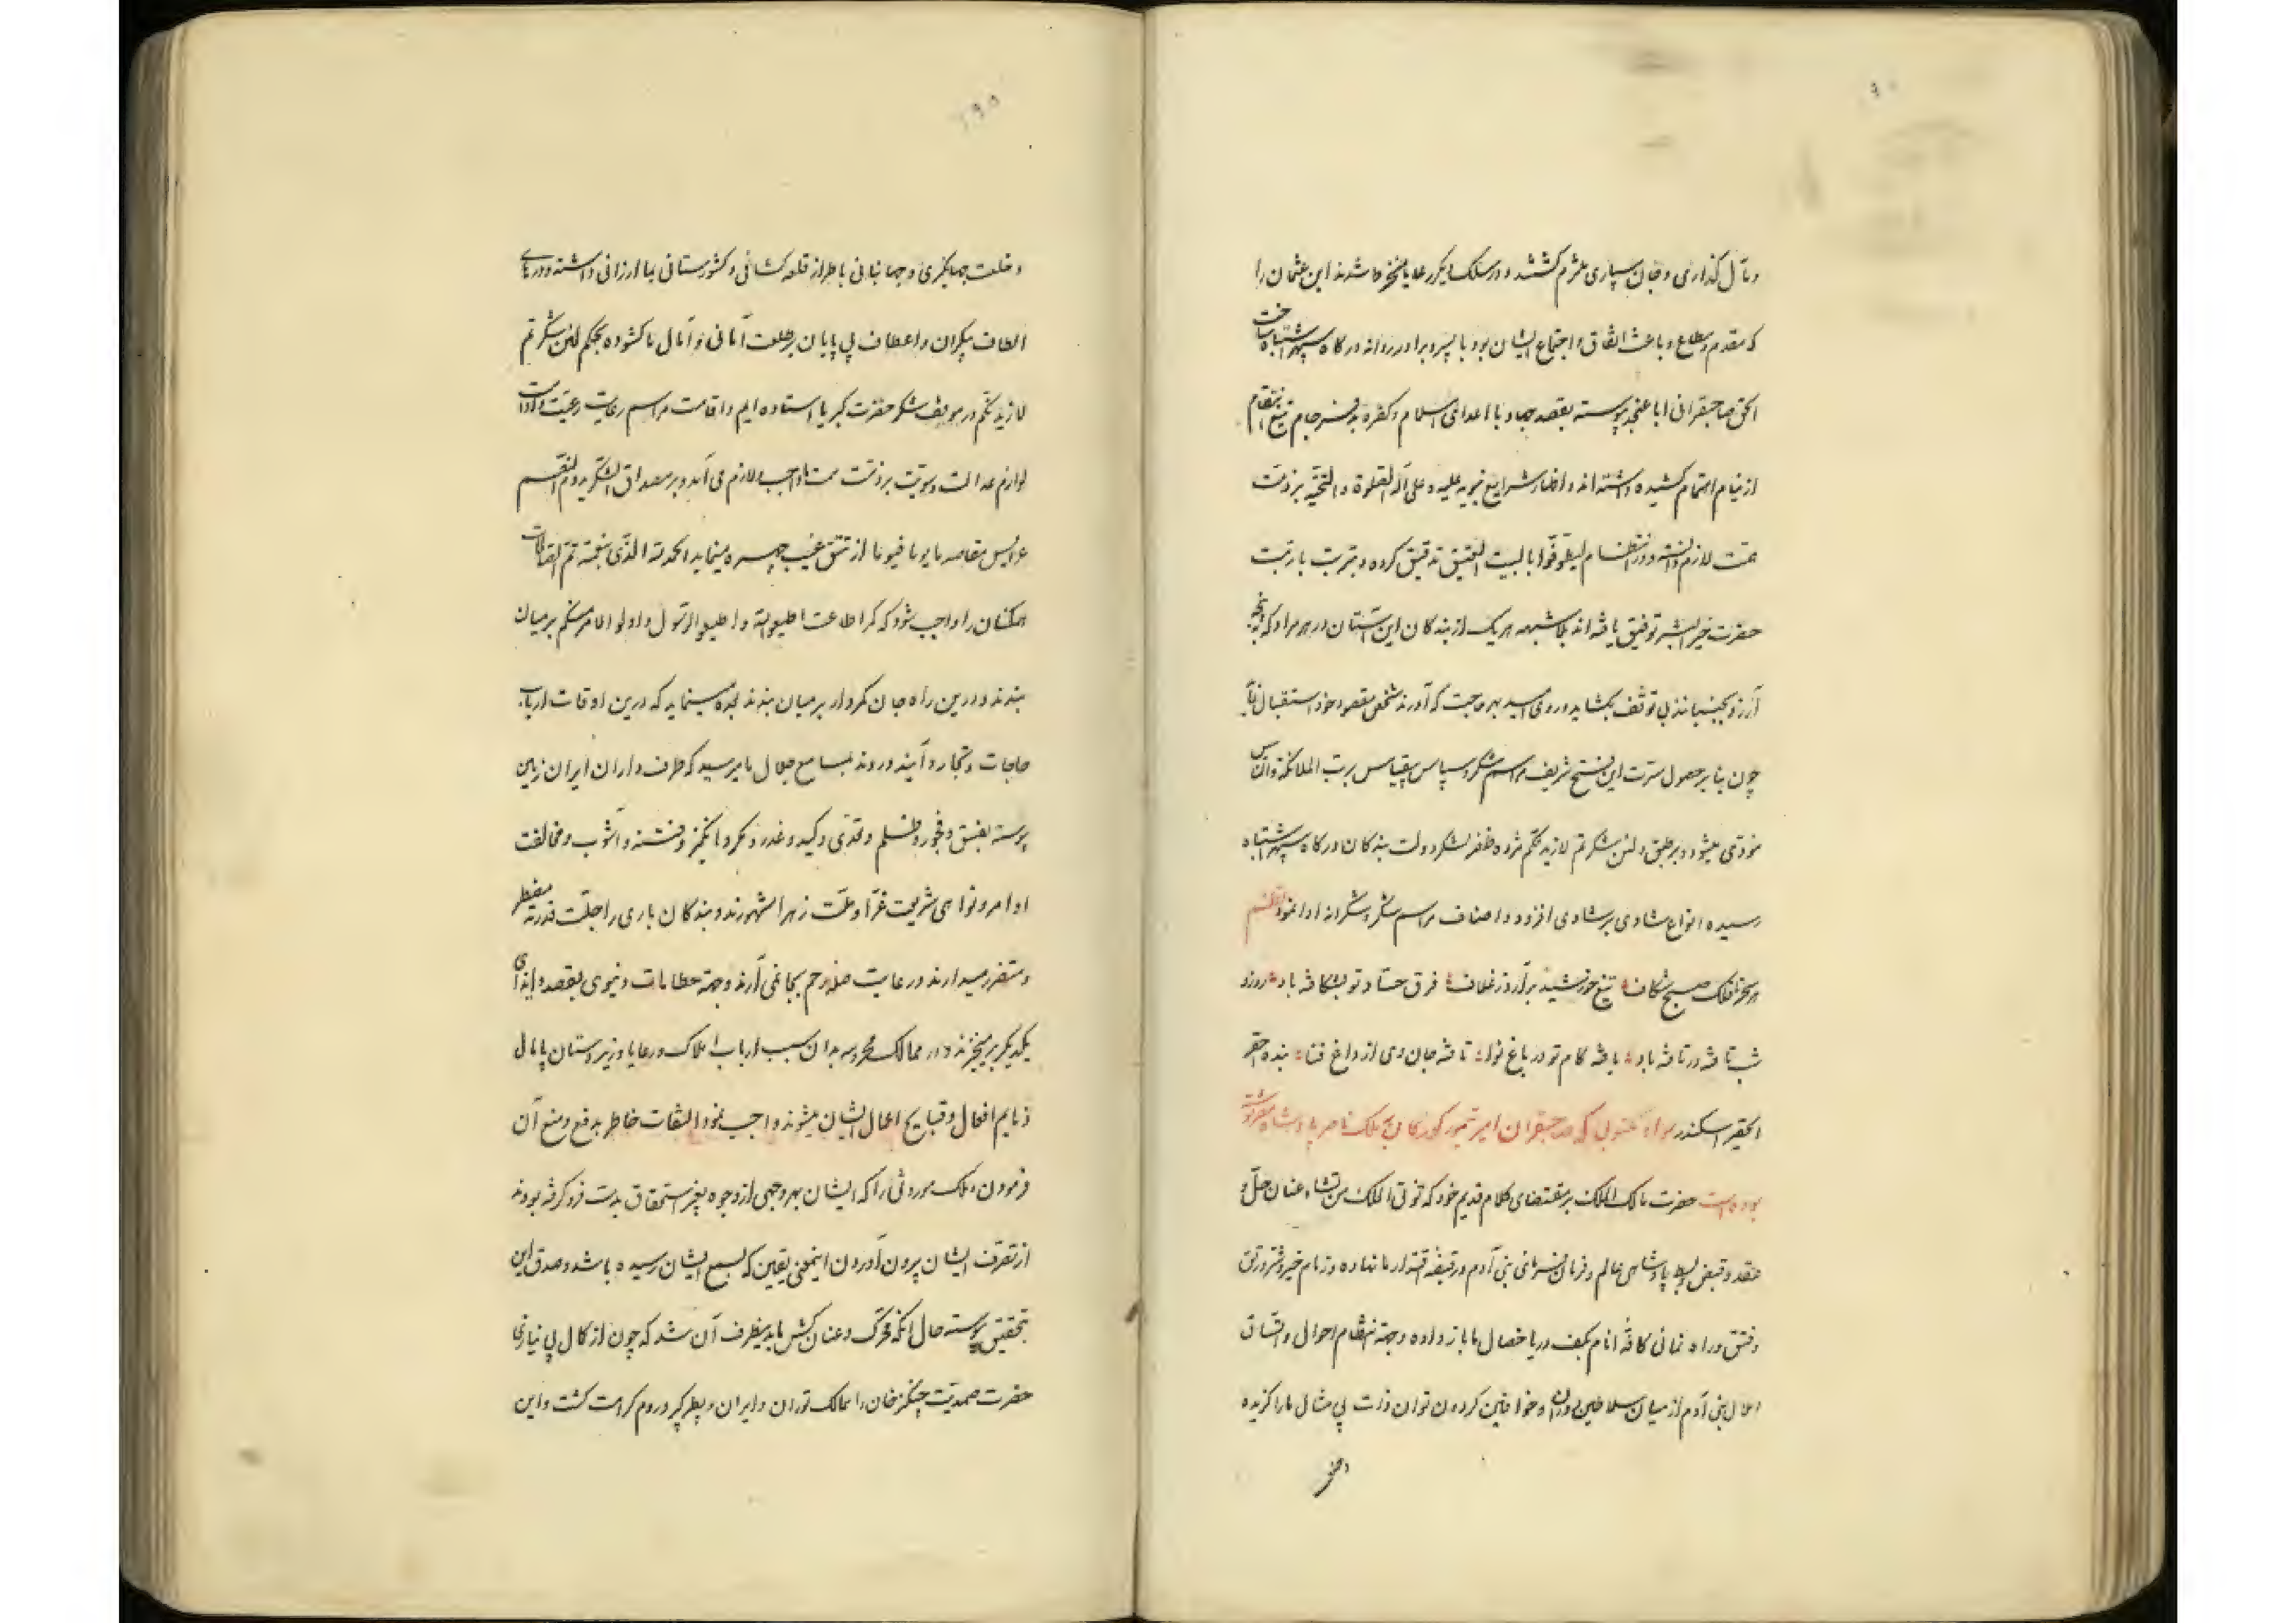 و مال گذاری و جان سپاری ملتزم گشتند و در سلک دیگر رعایا منخرط شدند ابن عثمان را
که مقدم و مطاع و باعث اتفاق و اجتماع ایشان بود با پسر و برادر روانه درگاه سپهر اشتباه ساخت
الحق صاحبقرانی ابا عن جد پیوسته بقصد جهاد با اعدای اسلام و کفره بد فرجام تیغ انتقام
از نیام اهتمام کشیده داشته‌اند و اظهار شرایع نبویه علیه و علی آله الصلوة و التحیه بر ذمت
همت لازم دانسته و در انتظام لیطوفوا بالبیت العتیق تدقیق کرده و بتربت با رتبت
حضرت خیر البشر توفیق یافته‌اند بلا شبهه هر یک از بندگان این آستان در هر مراد که پنجه
آرزو بجنبانند بی توقف بگشاید و روی امید بهر حاجت که آورند شخص مقصود خود استقبال نماید
چون بنا بر حصول مسرت این فتح شریف مراسم شکر و سپاس بیقیاس برب الملائکة والناس
مؤدی میشود و بر طبق و لئن شکرتم لازیدنکم مژده ظفر لشکر دولت بندگان درگاه سپهر اشتباه
رسیده انواع شادی بر شادی افزود و اصناف مراسم شکر و شکرانه ادا نمود نظم
هر سحر تا فلک صبح شکاف تیغ خورشید برآرد ز غلاف فرق حساد تو بشکافه باد روز و
شب تافه در تافه باد یافه کام تو در باغ نوا تافه جان وی از داغ فنا بنده احقر
الحقیر اسکندر سواد مکتوبی که صاحبقران امیر تیمور گورکان بملک ناصر پادشاه مصر نوشته
بوده است حضرت مالک الملک بر مقتضای کلام قدیم خود که تؤتی الملک من تشاء عنان حل و
عقد و قبض و بسط پادشاهی عالم و فرمان فرمائی بنی آدم در قبضه اقتدار ما نهاده و زمام خیر و شر و رتق
و فتق و راه نمائی کافه انام بکف دریا خصال ما باز داده و جهة انتظام احوال و اتساق
اعمال بنی آدم از میان سلاطین دوران و خواقین گردون توان ذات بی مثال ما را گزیده
و خلعت جهانگیری و جهانبانی با طراز قلعه گشائی و کشورستانی بما ارزانی داشته و درهای
الطاف بیکران و اعطاف بی پایان بر طلعت آمانی و آمال ما گشوده بحکم لئن شکرتم
لازیدنکم در موقف شکر حضرت کبریا استاده‌ایم و اقامت مراسم رعایت رعیت و ادامت
لوازم عدالت و سویت بر ذمت همت ما واجب و لازم می آید و بر مصداق الشکر یدوم النعم
عرایس مقاصد ما یوما فیوما از تتق غیب چهره مینماید الحمد لله الذی بنعمته تتم الصالحات
همگنان را واجب شود که کمر اطاعت اطیعوا الله و اطیعوا الرسول و اولوا الامر منکم بر میان
بندند و درین راه جان کمروار بر میان بندند نموده مینماید که درین اوقات ارباب
حاجات و تجار و آینده و رونده بمسامع جلال ما میرسید که طرف داران ایران زمین
پیوسته بفسق و فجور و ظلم و تعدی و کید و غدر و مکر و انگیز و فتنه و آشوب و مخالفت
اوامر و نواهی شریعت غرا و ملت زهرا مشهورند و بندگان باری را جلت قدرته مضطر
و متضرر میدارند و رعایت صله رحم بجا نمی آرند و جهة حطامات دنیوی بقصد و ایذای
یکدیگر برمیخیزند و در ممالک محروسه بدان سبب ارباب املاک و رعایا و زیردستان پایمال
ذمایم افعال و قبایح اعمال ایشان میشوند واجب نمود التفات خاطر بدفع و منع آن
فرمودن و ملک موروثی را که ایشان بهر وجهی از وجوه بغیر استحقاق بدست فرو گرفه بودند
از تصرف ایشان بیرون آوردن اینمعنی یقین که بسمع ایشان رسیده باشد و صدق این
بتحقیق پیوسته حال آنکه محرک و عنان کش ما بدینطرف آن شد که چون از کمال بی نیازی
حضرت صمدیت چنگیز خان را ممالک توران و ایران و بظر کبر و روم کرامت گشت و این
و خلعت